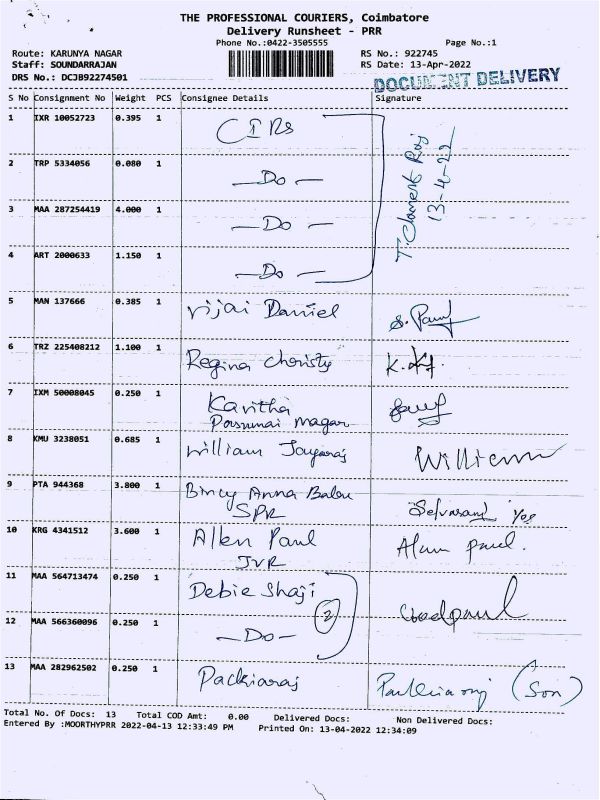 THE PROFESSIONAL COURIERS, Coimbatore
Delivery Runsheet - PRR
Phone No.:0422-3505555
Page No.:1
Route: KARUNYA NAGAR
RS No.: 922745
Staff: SOUNDARRAJAN
RS Date: 13-Apr-2022
DRS No.: DCJB92274501
DOCUMENT DELIVERY
S No Consignment No Weight PCS Consignee Details Signature
1 IXR 10052723 0.395 1 CIRs
T. Clament Raj
13-4-22
2 TRP 5334056 0.080 1 —Do—
3 MAA 287254419 4.000 1 —Do—
4 ART 2000633 1.150 1 —Do—
5 MAN 137666 0.385 1 Vijai Daniel
6 TRZ 225408212 1.100 1 Regina Christy
7 IXM 50008045 0.250 1 Kavitha
nagar
8 KMU 3238051 0.685 1 William
William
9 PTA 944368 3.800 1 Bincy Anna Babu
SPR
10 KRG 4341512 3.600 1 Allen Paul
JVR
11 MAA 564713474 0.250 1 Debie Shaji
2
12 MAA 566360096 0.250 1 —Do—
13 MAA 282962502 0.250 1 Packiaraj
(Son)
Total No. Of Docs: 13 Total COD Amt: 0.00 Delivered Docs: Non Delivered Docs:
Entered By :MOORTHYPRR 2022-04-13 12:33:49 PM Printed On: 13-04-2022 12:34:09